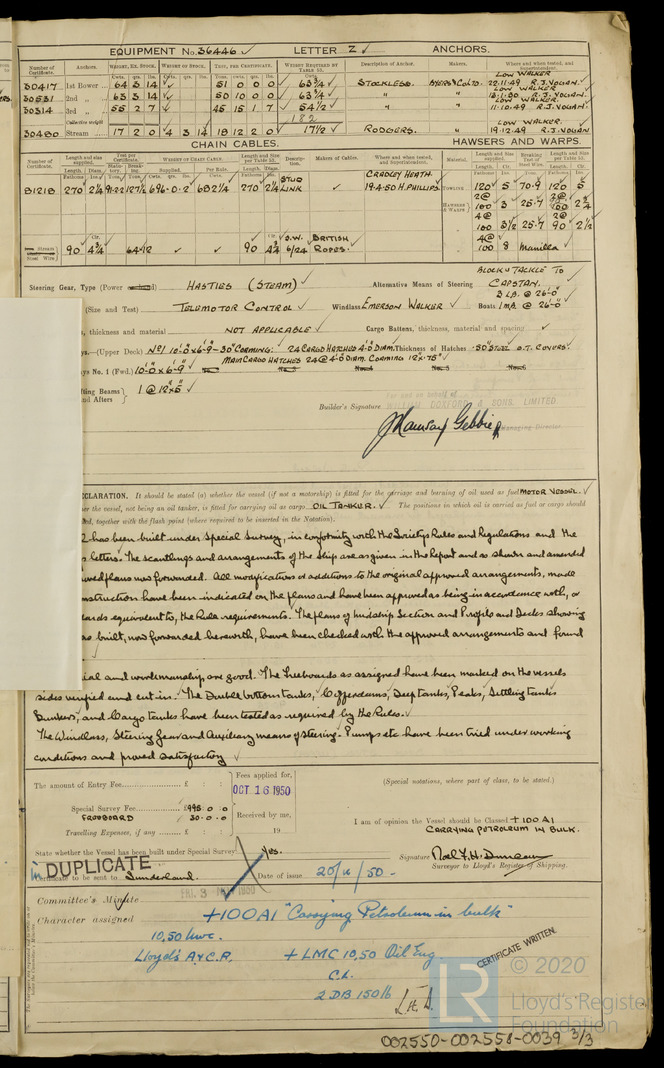 EQUIPMENT No. 36446 ✓ LETTER Z ✓ ANCHORS.
Number of Certificate. Anchors. WEIGHT, EX. STOCK. WEIGHT OF STOCK. TEST, PER CERTIFICATE. WEIGHT REQUIRED BY TABLE 53. Description of Anchor. Makers. Where and when tested, and Superintendent.
Cwts. qrs. lbs. Cwts. qrs. lbs. Tons. cwts. qrs. lbs. Cwts.
30417 1st Bower 64 3 14 51 0 0 0 63¾ STOCKLESS. BYERS & CO LTD LOW WALKER 22.11.49 R.J. VOGAN.
30531 2nd „ 63 3 14 50 10 0 0 63¾ " " LOW WALKER R.J. VOGAN.
30314 3rd „ 55 2 7 45 15 1 7 54½ " " LOW WALKER. 11.10.49 R.J. VOGAN
Collective weight 182
30480 Stream 17 2 0 4 3 14 18 12 2 0 17½ RODGERS. LOW WALKER. 19.12.49 R.J. VOGAN
CHAIN CABLES. HAWSERS AND WARPS.
Number of Certificate. Length and size supplied. Test per Certificate. WEIGHT OF CHAIN CABLE. Length and Size per Table 53. Description. Makers of Cables. Where and when tested, and Superintendent. Material. Length and size supplied. Breaking Test of Steel Wire. Length and Size per Table 53.
81218 270 2¼ 696-0-2 682¼ 270 2¼ STUD LINK ✓ CRADLEY HEATH. 19.4.50 H. PHILLIPS. TOWLINE 120 5 70.9 120 5
HAWSERS & WARPS 2@ 100 3 25.7 2@ 100 2¾
4@ 100 3½ 25.7 2@ 90 2½
4@ 100 8 Manilla
Stream Steel Wire 90 4¾ 64.12 ✓ ✓ 90 4¾ S.W. 6/24 BRITISH ROPES.
Steering Gear, Type (Power HASTIES (STEAM) ✓ Alternative Means of Steering BLOCK & TACKLE TO CAPSTAN.
(Size and Test) TELEMOTOR CONTROL ✓ Windlass EMERSON WALKER ✓ Boats 3 L.B. @ 26-0 1 M.B. @ 26-0
, thickness and material NOT APPLICABLE ✓ Cargo Battens, thickness, material and spacing ✓
ys.—(Upper Deck) No 1 10-0 x 6-9 - 30" COAMING: 24 CARGO HATCHES 4-0 DIAM. Thickness of Hatches .50" STEEL O.T. COVERS.
MAIN CARGO HATCHES 24 @ 4-0 DIAM. COAMING 12 x .75"
ys No. 1 (Fwd.) 10-0 x 6-9 ✓
fting Beams
nd Afters 1 @ 12" x 5" ✓
For and on behalf of
WILLIAM DOXFORD & SONS, LIMITED.
Builder's Signature J Ramsay Gebbie
Managing Director
ECLARATION. It should be stated (a) whether the vessel (if not a motorship) is fitted for the carriage and burning of oil used as fuel MOTOR VESSEL.
er the vessel, not being an oil tanker, is fitted for carrying oil as cargo OIL TANKER. ✓ The positions in which oil is carried as fuel or cargo should
ed, together with the flash point (where required to be inserted in the Notation).
has been built under Special Survey, in conformity with the Society's Rules and Regulations and the
s letters. The scantlings and arrangements of the ship are as given in the Report and as shewn and amended
oved plans now forwarded. All modifications or additions to the original approved arrangements, made
nstruction have been indicated on the plans and have been approved as being in accordance with, or
ards equivalent to, the Rule requirements. The plans of Midship Section and Profile and Decks showing
as built, now forwarded herewith, have been checked with the approved arrangements and found
ial and workmanship, are good. The Freeboards as assigned have been marked on the vessels
sides verified and cut in. The Double bottom tanks, Cofferdams, Deep tanks, Peaks, Settling tanks
Bunkers, and Cargo tanks have been tested as required by the Rules. ✓
The Windlass, Steering Gear and Auxiliary means of steering - Pumps etc have been tried under working
conditions and proved satisfactory ✓
The amount of Entry Fee £ : : Fees applied for, (Special notations, where part of class, to be stated.)
OCT 16 1950
Special Survey Fee £995 : 0 : 0
FREEBOARD 30 . 0 . 0 Received by me, I am of opinion the Vessel should be Classed +100 A1
CARRYING PETROLEUM IN BULK.
Travelling Expenses, if any £ : : 19
State whether the Vessel has been built under Special Survey Yes.
Signature Noel F.H. Duncan
Surveyor to Lloyd's Register of Shipping.
in DUPLICATE
Certificate to be sent to Sunderland. Date of issue 20/11/50.
FRI. 3 NOV 1950
Committee's Minute
Character assigned +100A1 "Carrying Petroleum in bulk"
10,50 Lwc.
Lloyd's A & C.R. + LMC 10,50 Oil Eng.
C.L.
2 DB 150 lb
CERTIFICATE WRITTEN.
LR
© 2020
Lloyd's Register
Foundation
002550-002558-0039 3/3